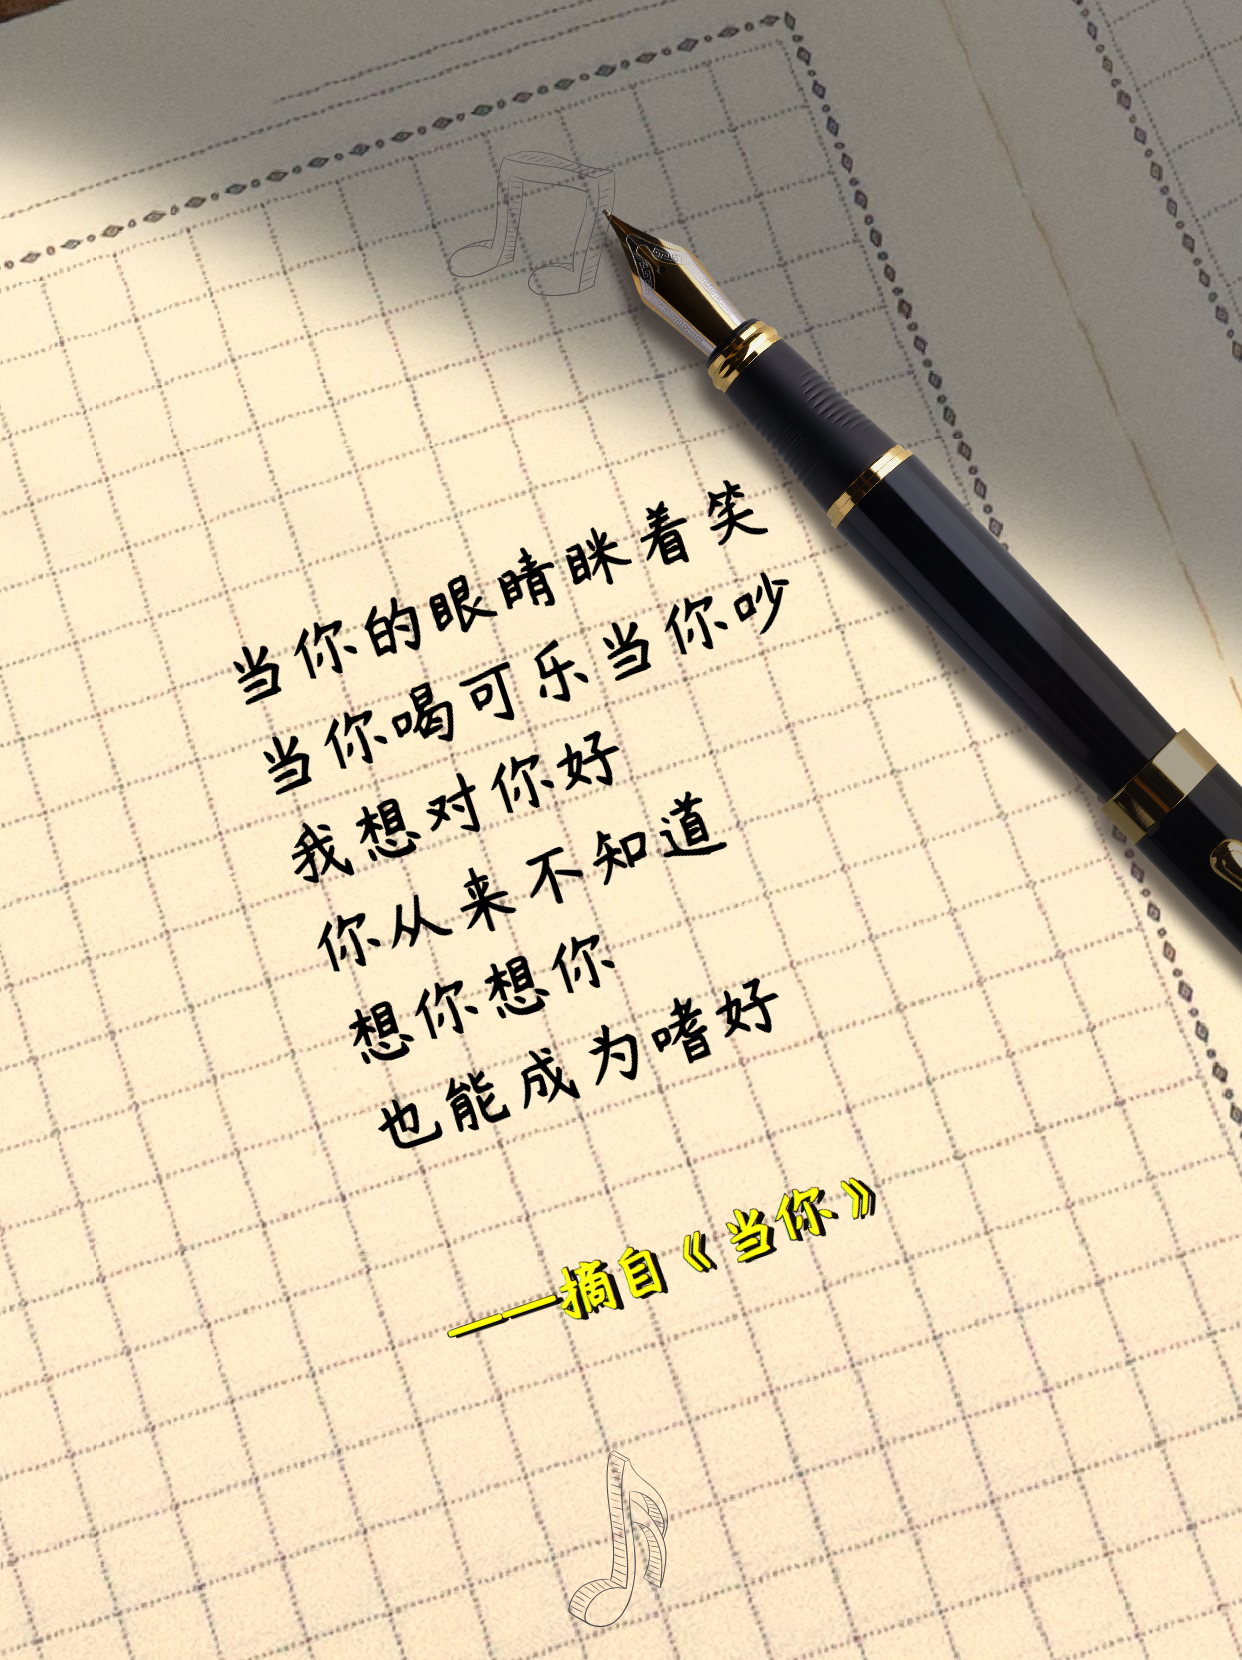 当你的眼睛眯着笑
当你喝可乐当你吵
我想对你好
你从来不知道
想你想你
也能成为嗜好
——摘自《当你》